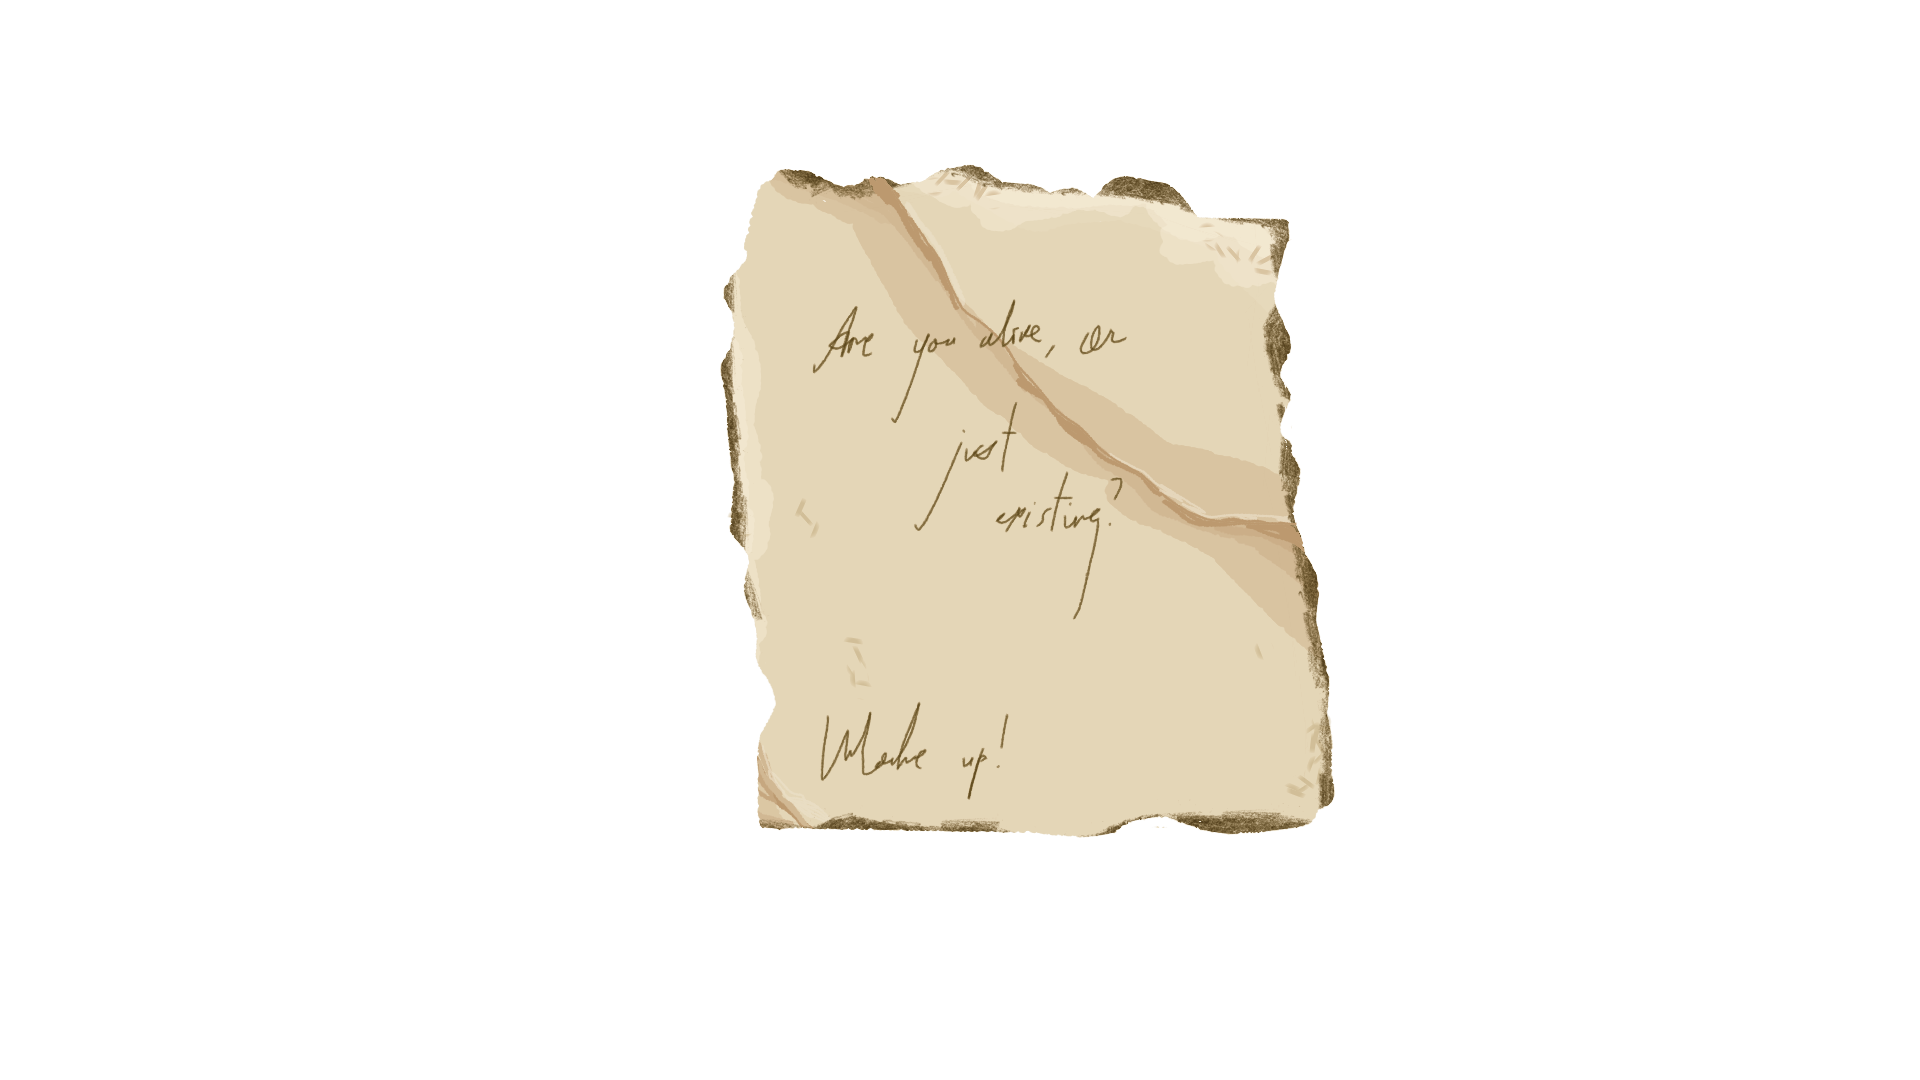 Are you alive, or
just
existing?
Wake up!